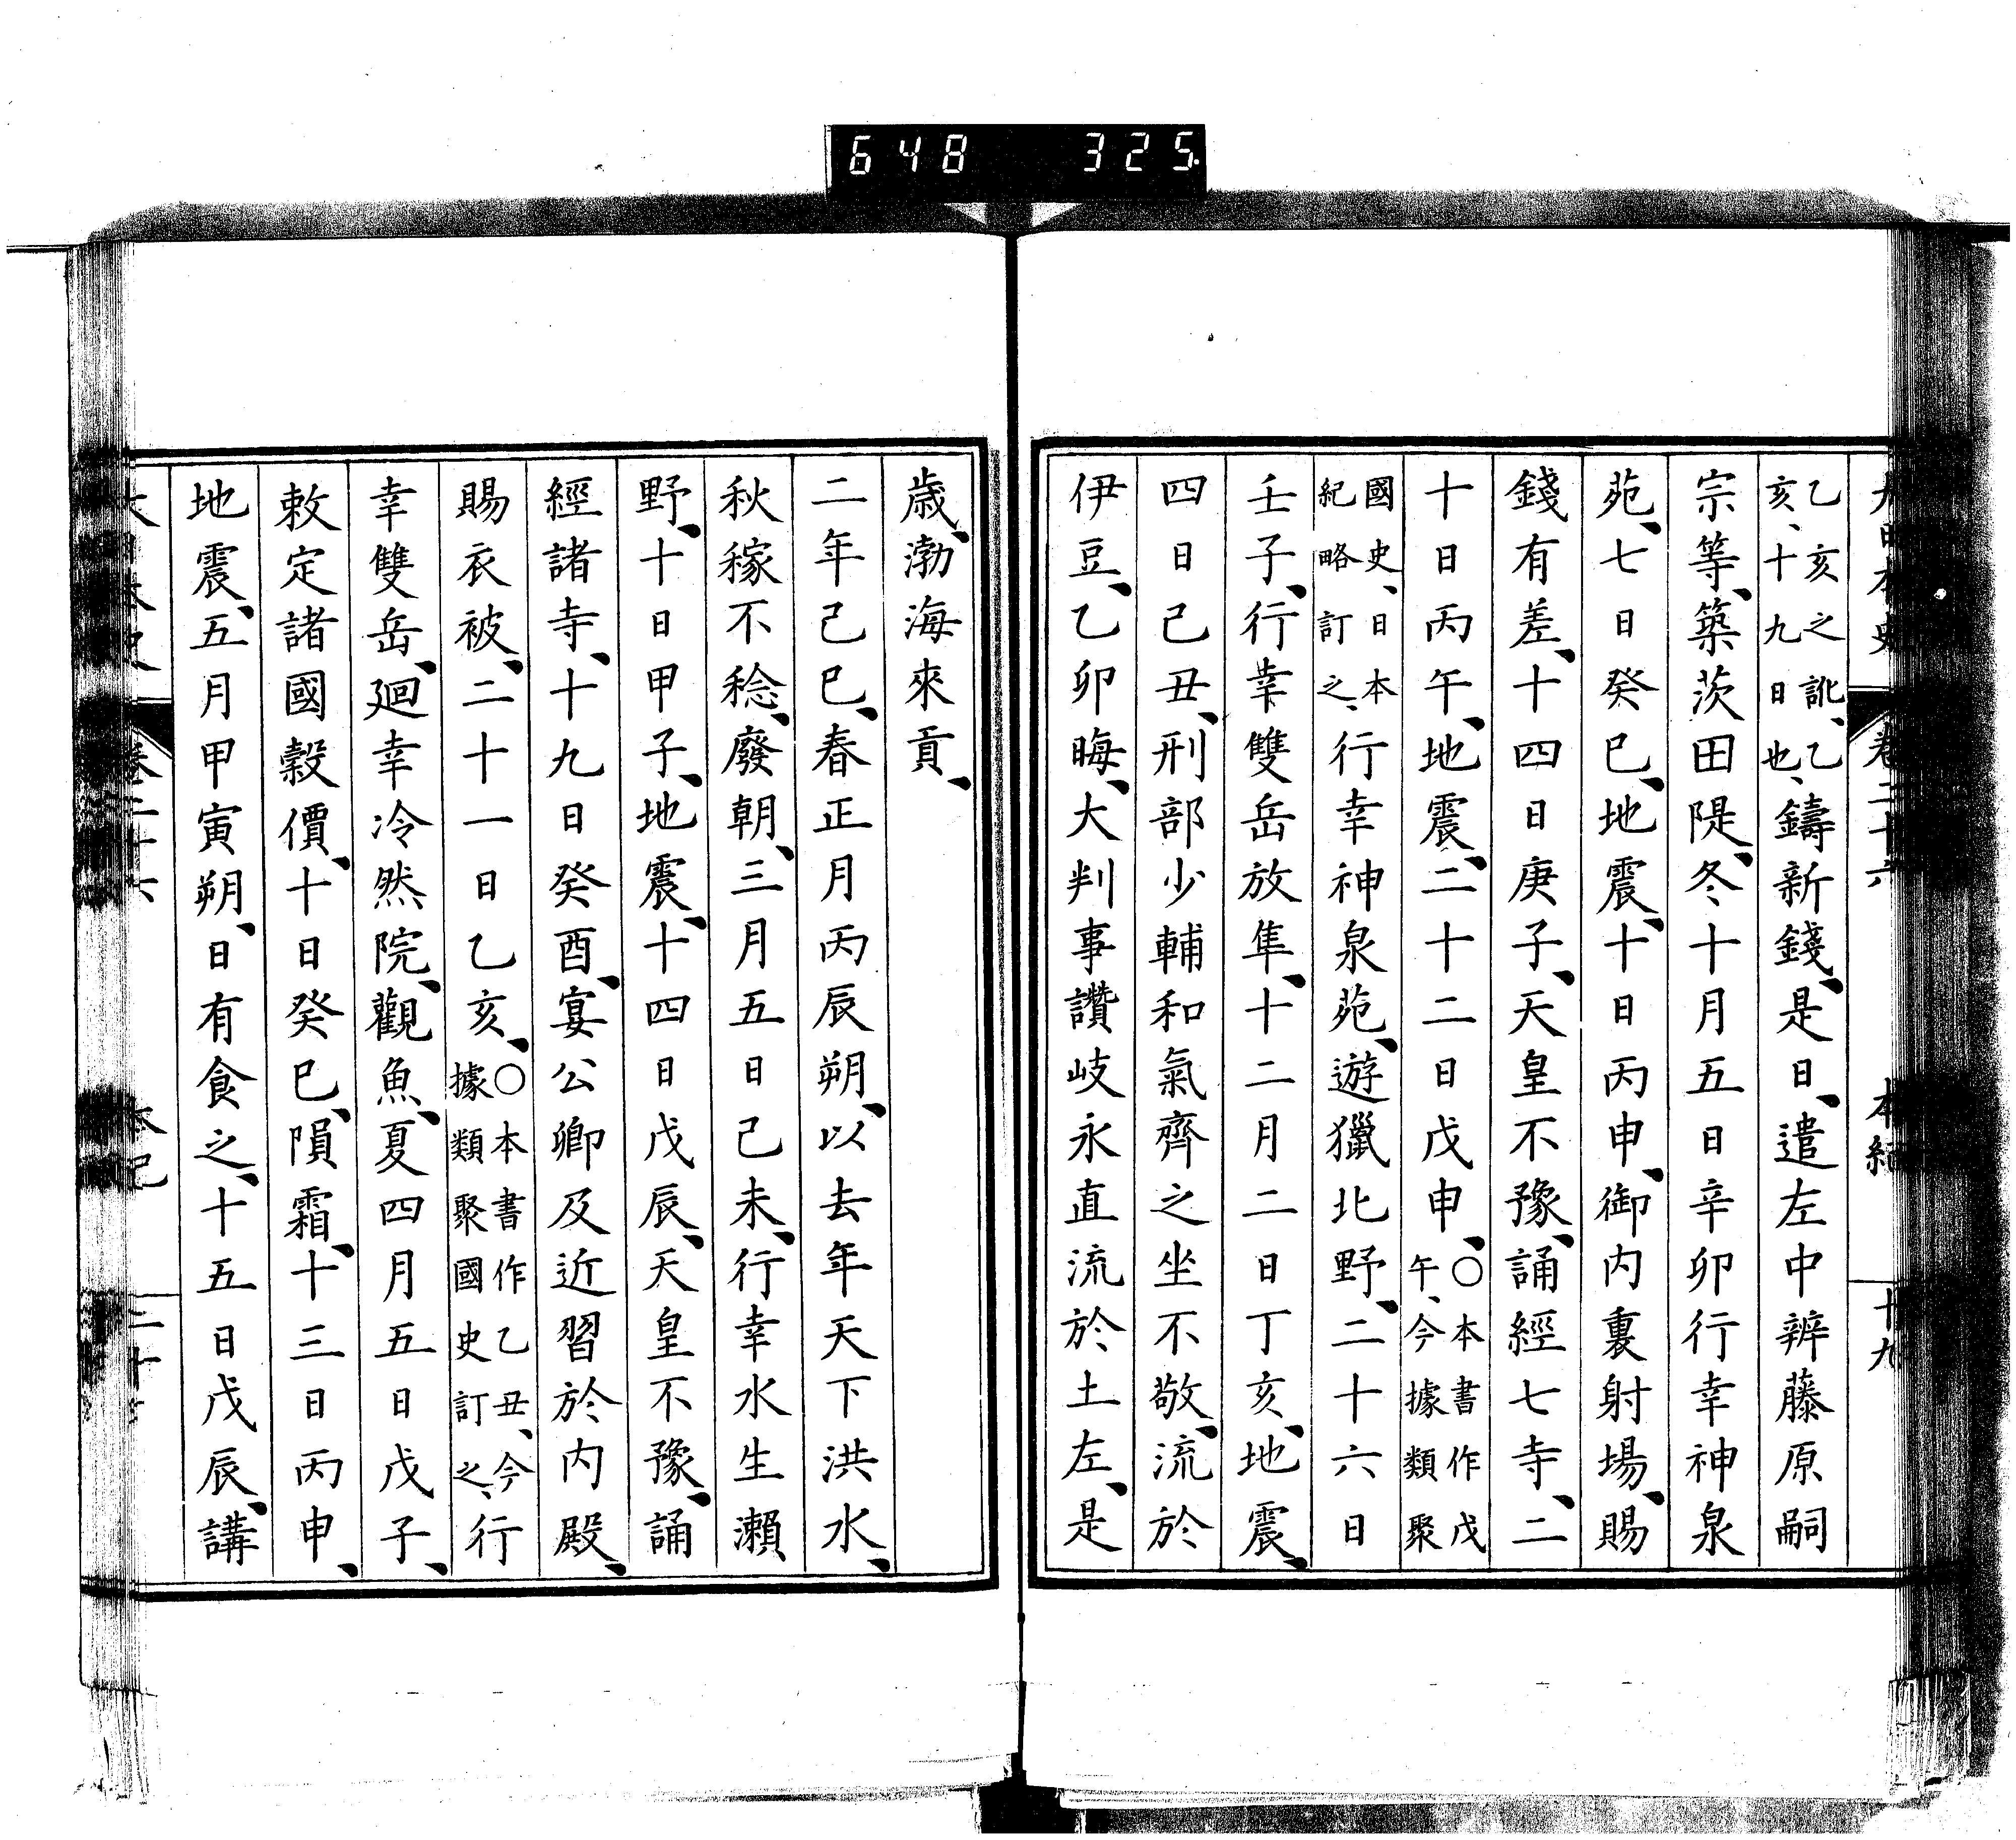 648 325
大日本史 卷二十六 本紀 十九
乙亥之訛、乙亥、十九日也、鑄新錢、是日、遣左中辨藤原嗣
宗等、築茨田隄、冬、十月五日辛卯行幸神泉
苑、七日癸巳、地震、十日丙申、御内裏射場、賜
錢有差、十四日庚子、天皇不豫、誦經七寺、二
十日丙午、地震、二十二日戊申、○本書作戊午、今據類聚
國史、日本紀略訂之、行幸神泉苑、遊獵北野、二十六日
壬子、行幸雙岳放隼、十二月二日丁亥、地震、
四日己丑、刑部少輔和氣齊之坐不敬、流於
伊豆、乙卯晦、大判事讚岐永直流於土左、是
歳、渤海來貢、
二年己巳、春正月丙辰朔、以去年天下洪水、
秋稼不稔、廢朝、三月五日己未、行幸水生瀨
野、十日甲子、地震、十四日戊辰、天皇不豫、誦
經諸寺、十九日癸酉、宴公卿及近習於内殿、
賜衣被、二十一日乙亥、○本書作乙丑、今據類聚國史訂之、行
幸雙岳、廻幸冷然院、觀魚、夏四月五日戊子、
敕定諸國穀價、十日癸巳、隕霜、十三日丙申、
地震、五月甲寅朔、日有食之、十五日戊辰、講